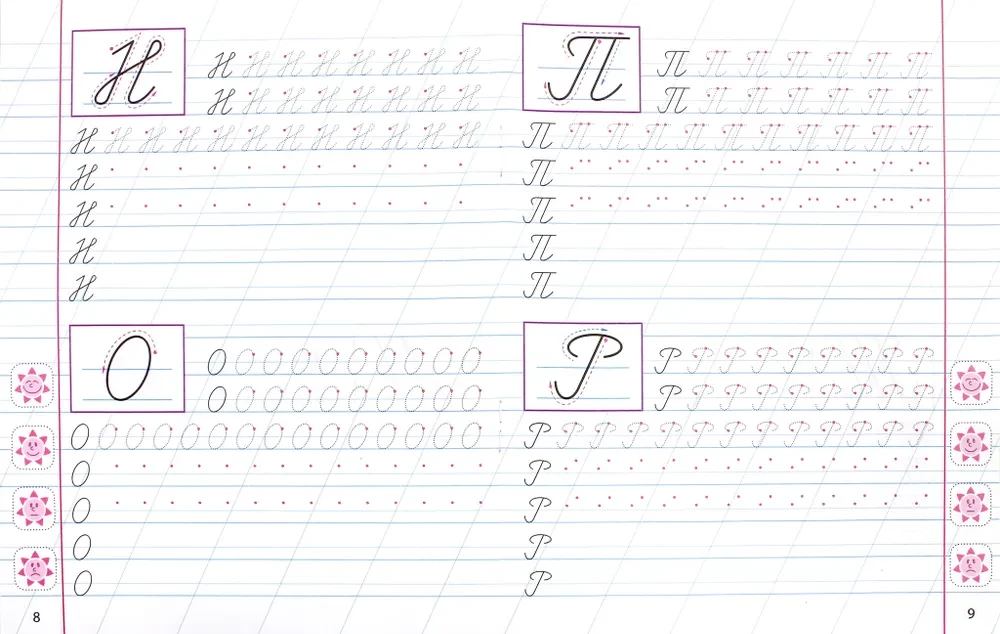 Н
Н Н Н Н Н Н Н Н
Н Н Н Н Н Н Н Н
Н Н Н Н Н Н Н Н Н Н Н Н
Н
Н
Н
Н
О
О О О О О О О О О О
О О О О О О О О О О
О О О О О О О О О О О О О О О
О
О
О
О
8
П
П П П П П П П
П П П П П П П
П П П П П П П П П П П
П
П
П
П
Р
Р Р Р Р Р Р Р Р Р
Р Р Р Р Р Р Р Р Р
Р Р Р Р Р Р Р Р Р Р Р Р Р
Р
Р
Р
Р
9